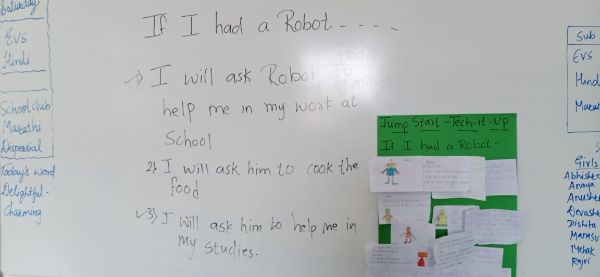 Saturday
EVS
Hindi
School club
Marathi
Dispersal
Today's word
Delightful -
Charming
If I had a Robot - - - -
1) I will ask Robot to
help me in my work at
School
2) I will ask him to cook the
food
3) I will ask him to help me in
my studies.
Jump Start - Tech - it - Up
If I had a Robot -
Sub
EVS
Hind
Marat
Girls
Abhishta
Anaya
Anushk
Devash
Dishita
Manasv
Mehak
Rajvi